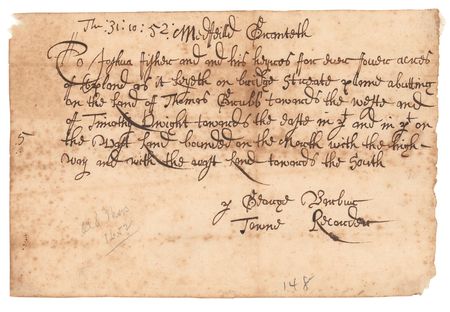 The :31:10:52: Medfeild Granteth
To Joshua fisher and and his heyres for ever fower acres
of upland as it lyeth on bridge Streate plaine abutting
on the land of Thomas Grubb towards the weste and
of Timothy Dwight towards the easte in pt and in pt on
the wast land bounded on the North with the high-
way and with the wast land towards the South
5
George Barbur
Towne Recorder
1652
148